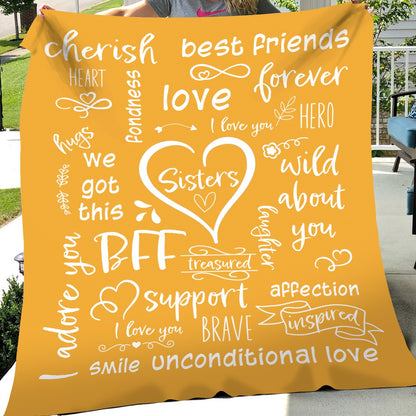 cherish best friends
HEART
fondness
forever
love
I love you
HERO
hugs
we
got
this
Sisters
wild
about
you
laughter
BFF
treasured
I adore you
support
affection
I love you
BRAVE
inspired
smile unconditional love